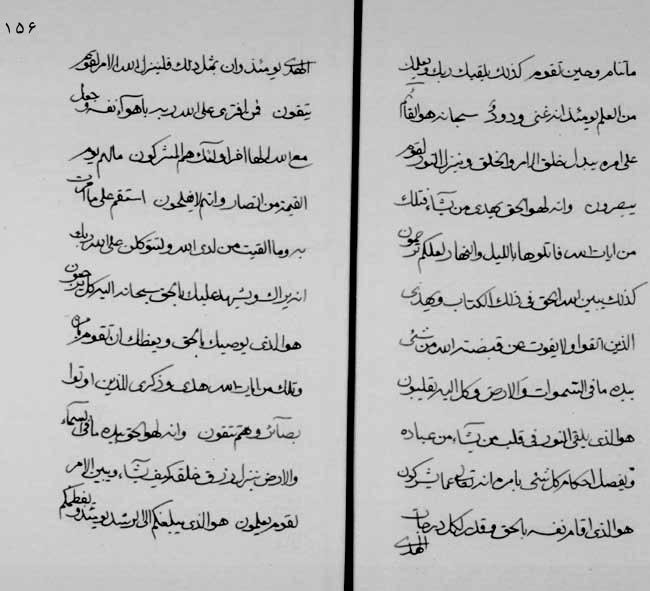 ١٥٦
ما تنام وحين تقوم كذلك يلقيك ربك ويعلمك
من العلم يومئذ انه غني ودود سبحانه هو القائم
على امره يبدل خلق الامر والخلق وينزل النور لقوم
يبصرون وانه لهو الحق يهدي من يشاء فتلك
من ايات الله فاتلوها بالليل والنهار لعلكم ترحمون
كذلك يبين الله الحق في ذلك الكتاب ويهدي
الذين اتقوا ولا يفوت عن قبضته الله من شئ
بيده ما في السموات والارض وكل اليه يقلبون
هو الذي يلقي النور في قلب من يشاء من عباده
ويفصل احكام كل شئ بامره انه تعالى عما يشركون
هو الذي اقام نفسه بالحق وقدر لكل درجات
الهدى
الهدى يومئذ وان بمثل ذلك فلينزل الله الامر لقوم
يتقون فمن افترى على الله ربه باهواء نفسه وجعل
مع الله الها اخر اولئك هم المشركون مالهم يوم
القيمة من انصار وانهم لا يفلحون استقم على ما امرت
به وما القيت من لدى الله ولتتوكلن على الله ربك
انه يراك ويشهد عليك بالحق سبحانه اليه كل يرجعون
هو الذي يوصيك بالحق ويعظك ان تقوم
وتلك من ايات الله هدى وذكرى للذين اوتوا
بصائر وهم يتقون وانه لهو الحق بيده ما في السماء
والارض ينزل رزق خلقه كيف يشاء ويبين الامر
لقوم يعلمون هو الذي يبلغكم الى الرشد يومئذ